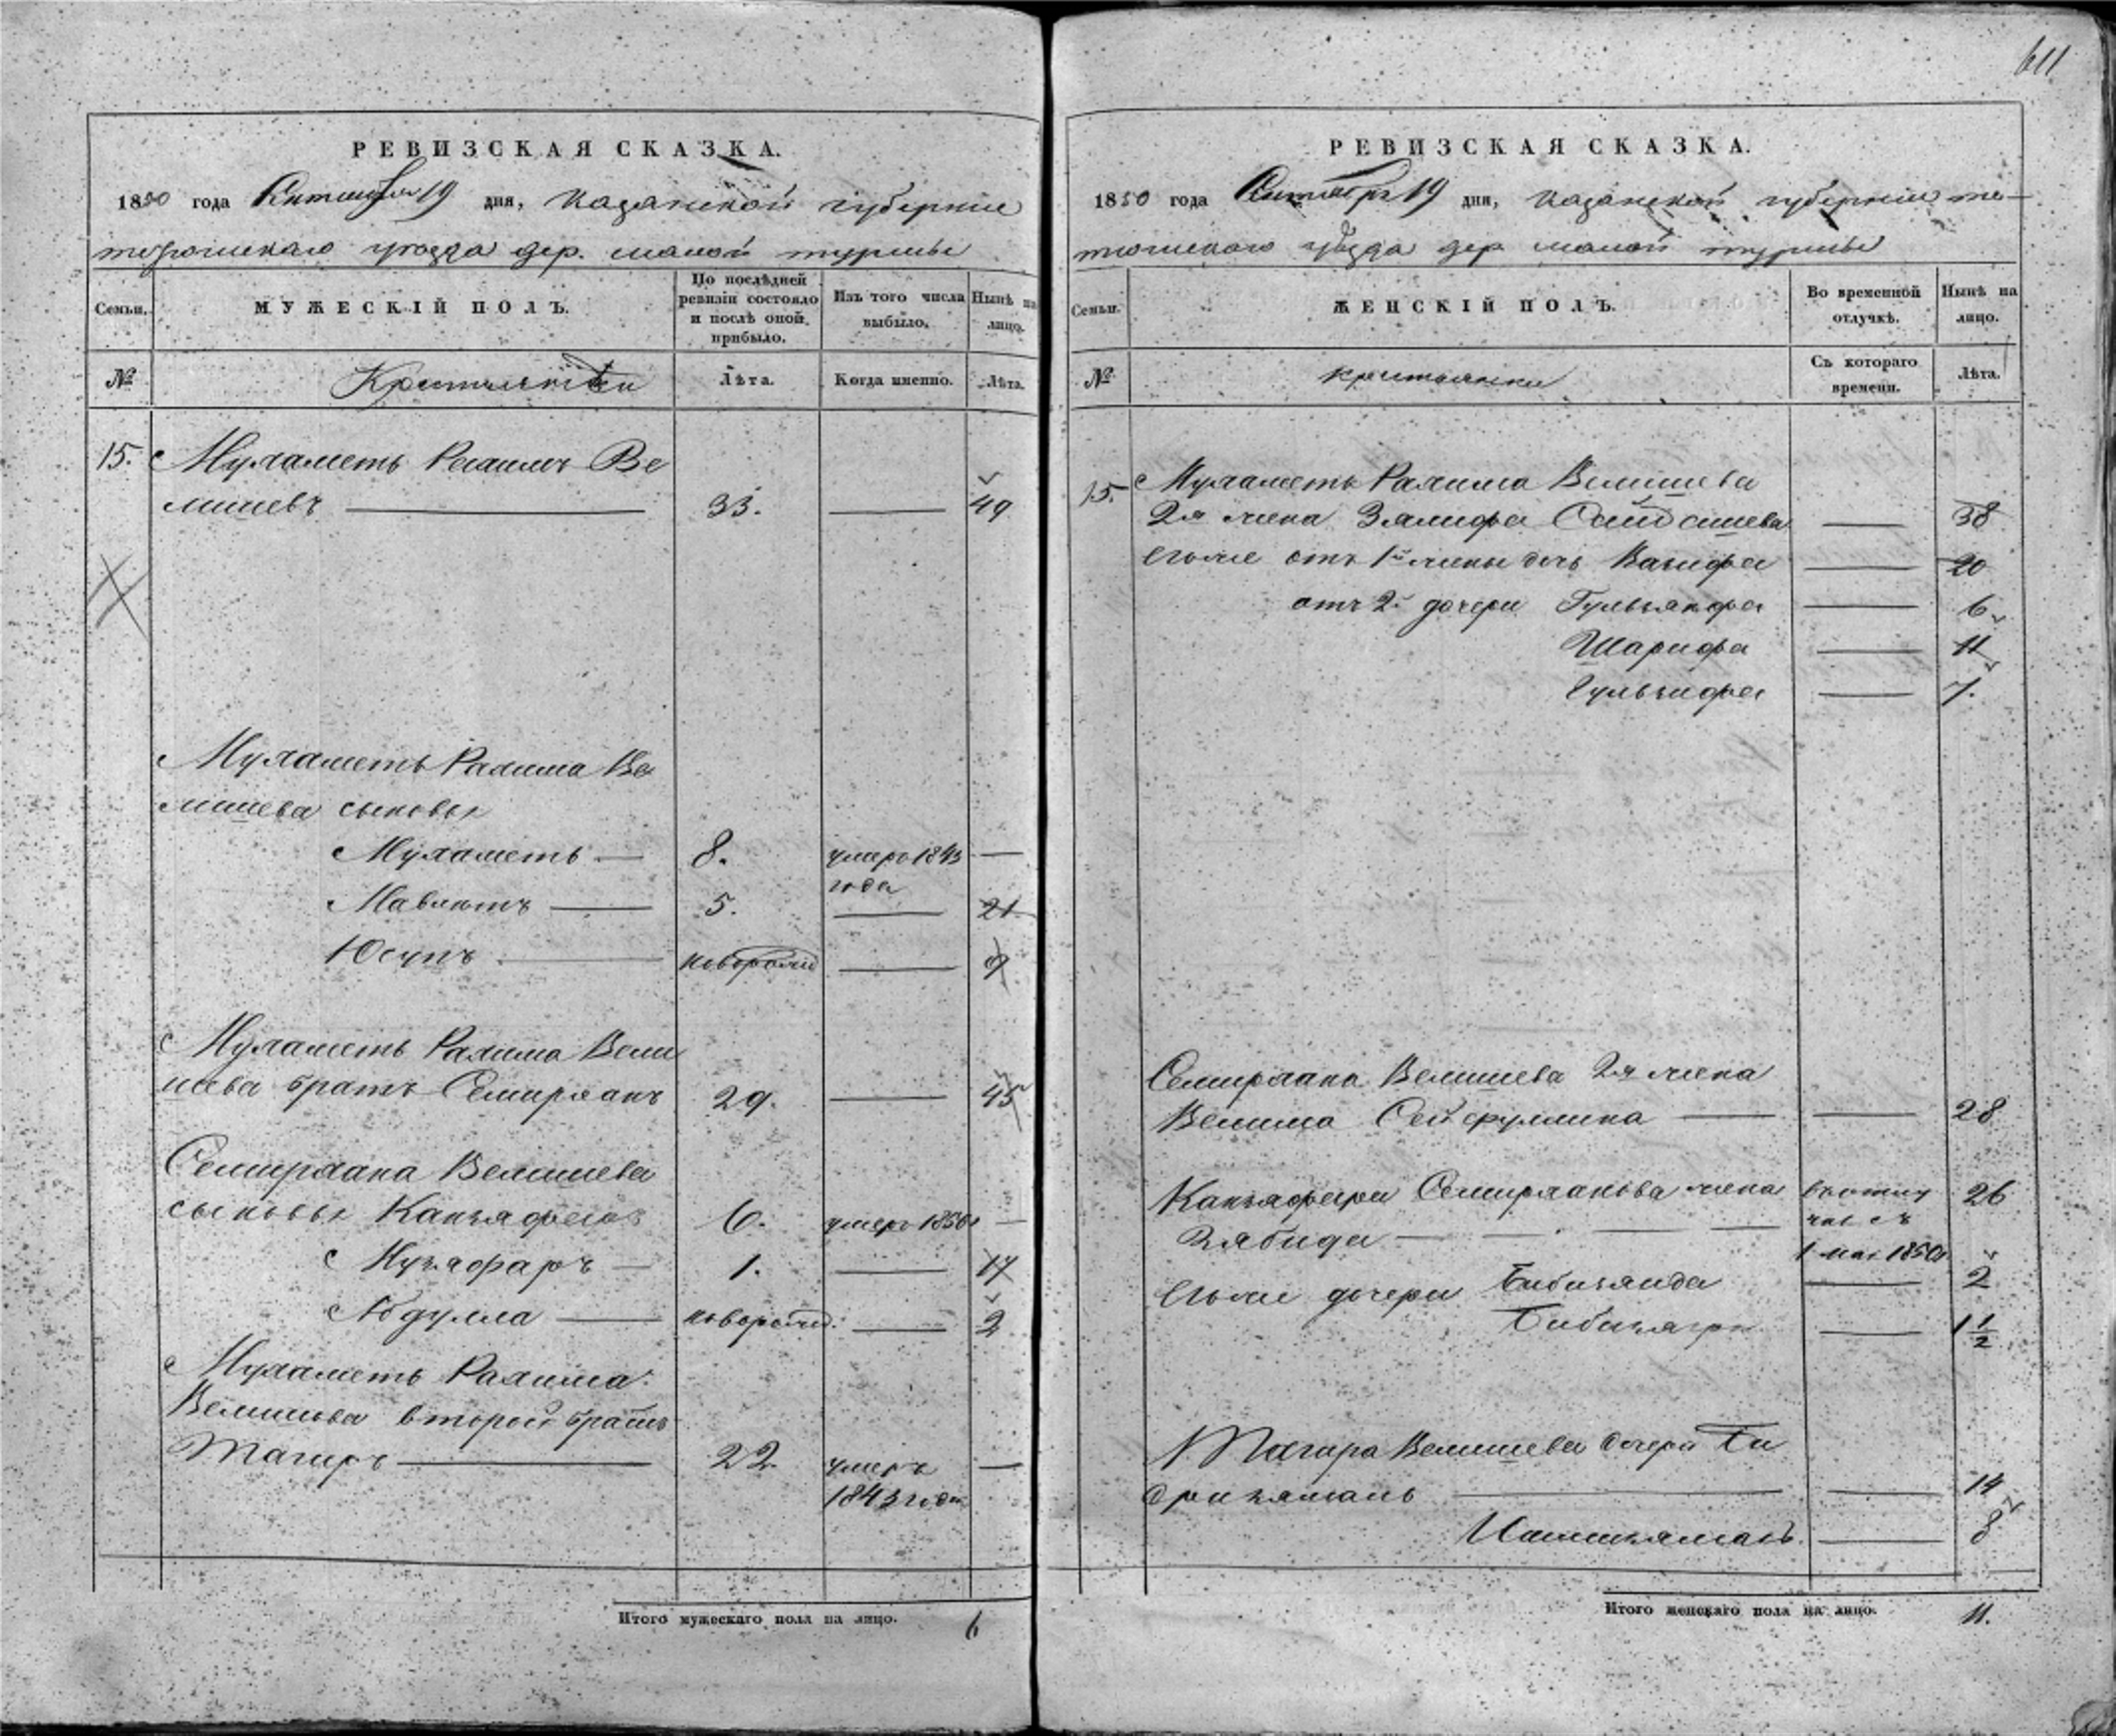 611
РЕВИЗСКАЯ СКАЗКА.
1850 года Сентября 19 дня, Казанской губернии
тетюшскаго уезда дер. малой турмы
Семьи. МУЖЕСКІЙ ПОЛЪ. По послѣдней ревизіи состояло и послѣ оной прибыло. Изъ того числа выбыло. Нынѣ на лицо.
№ Крестьяне Лѣта. Когда именно. Лѣта.
15. Мухаметь Рахимъ Ве
лишевъ 33. 49
Мухаметь Рахима Ве
лишева сыновья
Мухаметь 8. умеръ 1843
года
Мавлютъ 5. 21
Юсупъ новорожд 9
Мухаметь Рахима Вели
шева братъ Семирханъ 29. 45
Семирхана Велишева
сыновья 6. умеръ 1850
Музафаръ 1. 17
Абдулла новорожд. 2
Мухаметь Рахима
Велишева второй братъ
Тагиръ 22 умеръ
1843 года
Итого мужескаго пола на лицо. 6
РЕВИЗСКАЯ СКАЗКА.
1850 года Сентября 19 дня, Казанской губернии те-
тюшскаго уезда дер малой турмы
Семьи. ЖЕНСКІЙ ПОЛЪ. Во временной отлучкѣ. Нынѣ на лицо.
№ крестьянки Съ котораго времени. Лѣта.
15. Мухаметь Рахима Велишева
2я жена Зялифа 38
Егоже отъ 1й жены дочь Вазифа 20
отъ 2й дочери 6
Шарифа 11
Гульзифа 7.
Семирхана Велишева 2я жена
Велима Сейфуллина 28
Семирханова жена 26
Зябида 1 мая 1850
Егоже дочери 2
1 1/2
Тагира Велишева дочери Би
14
8
Итого женскаго пола на лицо. 11.